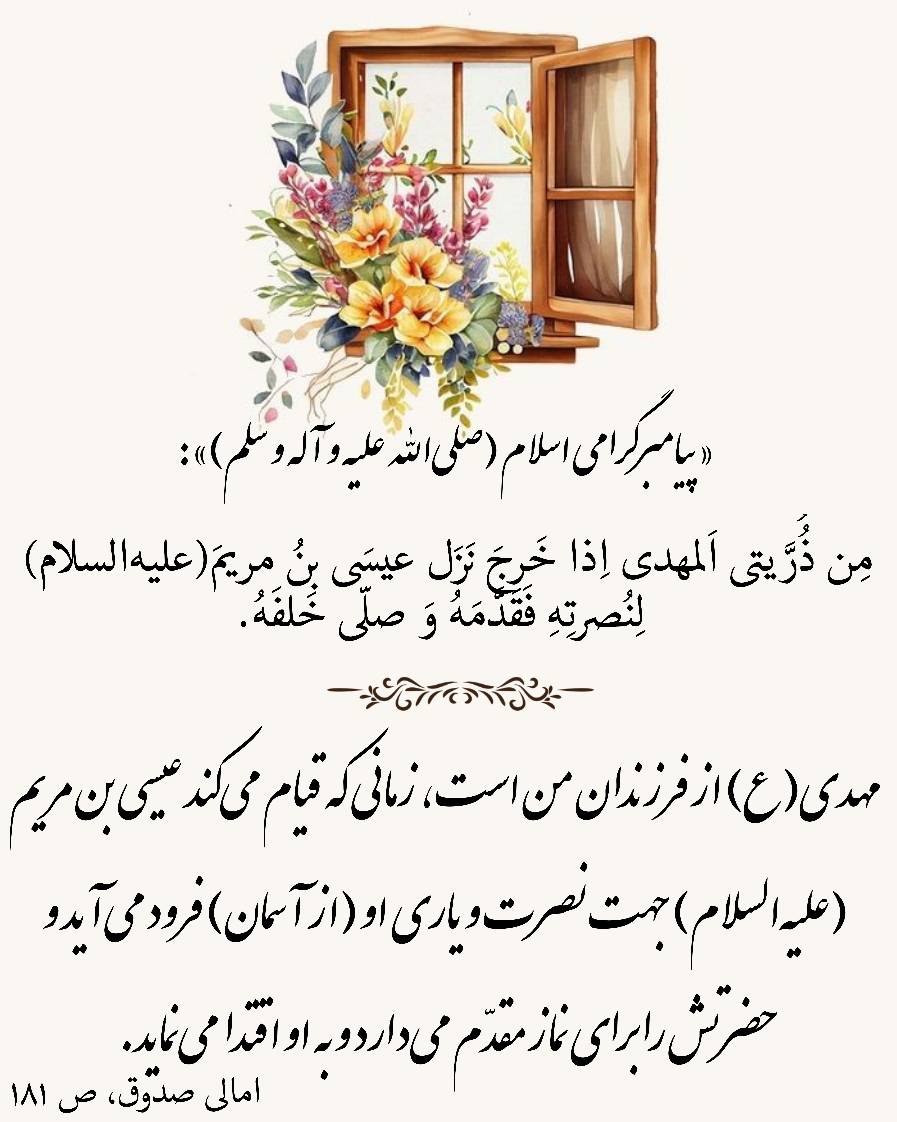 «پیامبر گرامی اسلام (صلی الله علیه و آله و سلم)»:
مِن ذُرَّیتی اَلمهدی اِذا خَرجَ نَزَل عیسَی بنُ مریمَ(علیه‌السلام)
لِنُصرتِهِ فَقَدَّمَهُ وَ صلّی خَلفَهُ.
مهدی(ع) از فرزندان من است، زمانی که قیام می‌کند عیسی بن مریم
(علیه السلام) جهت نصرت و یاری او (از آسمان) فرود می‌آید و
حضرتش را برای نماز مقدّم می‌دارد و به او اقتدا می‌نماید.
امالی صدوق، ص ۱۸۱